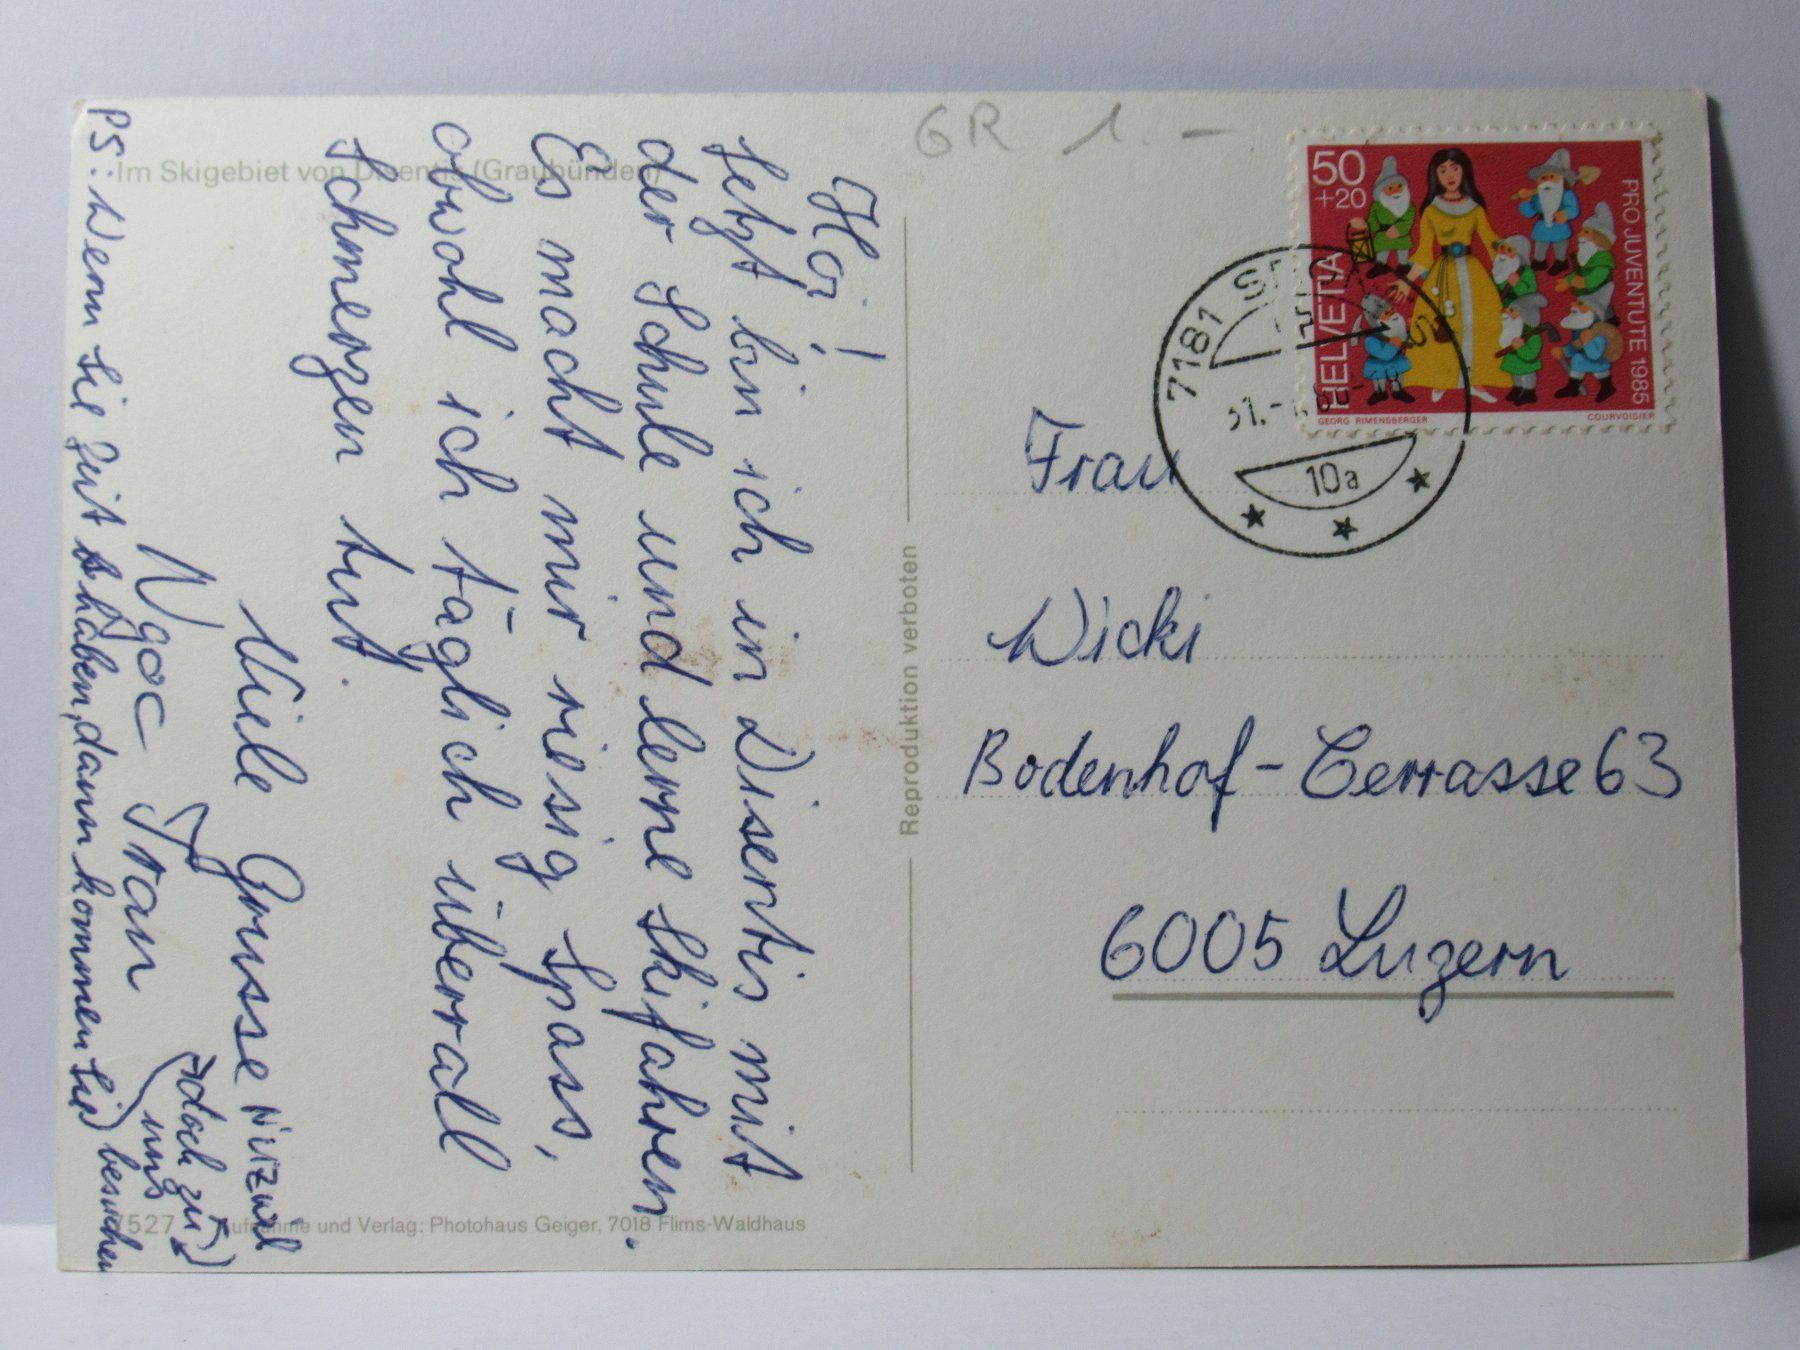 GR 1.-
Im Skigebiet von Disentis (Graubünden)
Hoi!
Jetzt bin ich in Disentis mit
der Schule und lerne Skifahren.
Es macht mir riesig Spass,
obwohl ich täglich überall
Schmerzen tut.
Viele Grüsse
Ngoc Tran
PS: Wenn Sie Zeit haben, dann kommen Sie
doch zu
uns
besuchen
Reproduktion verboten
7527 Aufnahme und Verlag: Photohaus Geiger, 7018 Flims-Waldhaus
50
+20
HELVETIA
PRO JUVENTUTE 1985
GEORG RIMENSBERGER
COURVOISIER
7181
10a
Frau
Wicki
Bodenhof-Terrasse 63
6005 Luzern